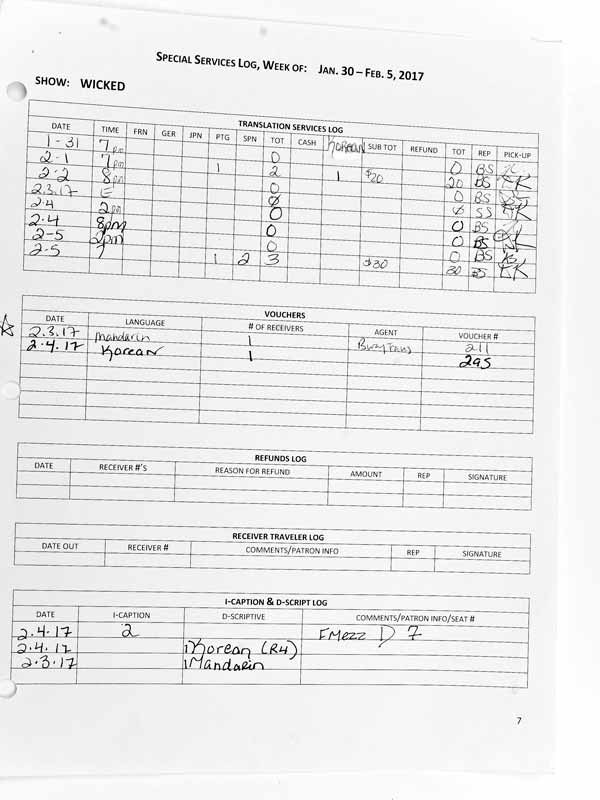 SPECIAL SERVICES LOG, WEEK OF: JAN. 30 – FEB. 5, 2017
SHOW: WICKED
TRANSLATION SERVICES LOG
DATE TIME FRN GER JPN PTG SPN TOT CASH Korean SUB TOT REFUND TOT REP PICK-UP
1-31 7pm 0 0 BS
2-1 7pm 1 2 1 $20 20 BS KK
2-2 8pm 0 0 BS
2.3.17 E 0 0 SS KK
2.4 2pm 0 0 BS
2.4 8pm 0 0 BS
2-5 2pm 0 0 BS
2-5 7 1 2 3 $30 30 BS KK
VOUCHERS
DATE LANGUAGE # OF RECEIVERS AGENT VOUCHER #
2.3.17 Mandarin 1 211
2.4.17 Korean 1 295
REFUNDS LOG
DATE RECEIVER #'S REASON FOR REFUND AMOUNT REP SIGNATURE
RECEIVER TRAVELER LOG
DATE OUT RECEIVER # COMMENTS/PATRON INFO REP SIGNATURE
I-CAPTION & D-SCRIPT LOG
DATE I-CAPTION D-SCRIPTIVE COMMENTS/PATRON INFO/SEAT #
2.4.17 2 FMezz D 7
2.4.17 1 Korean (R4)
2.3.17 1 Mandarin
7